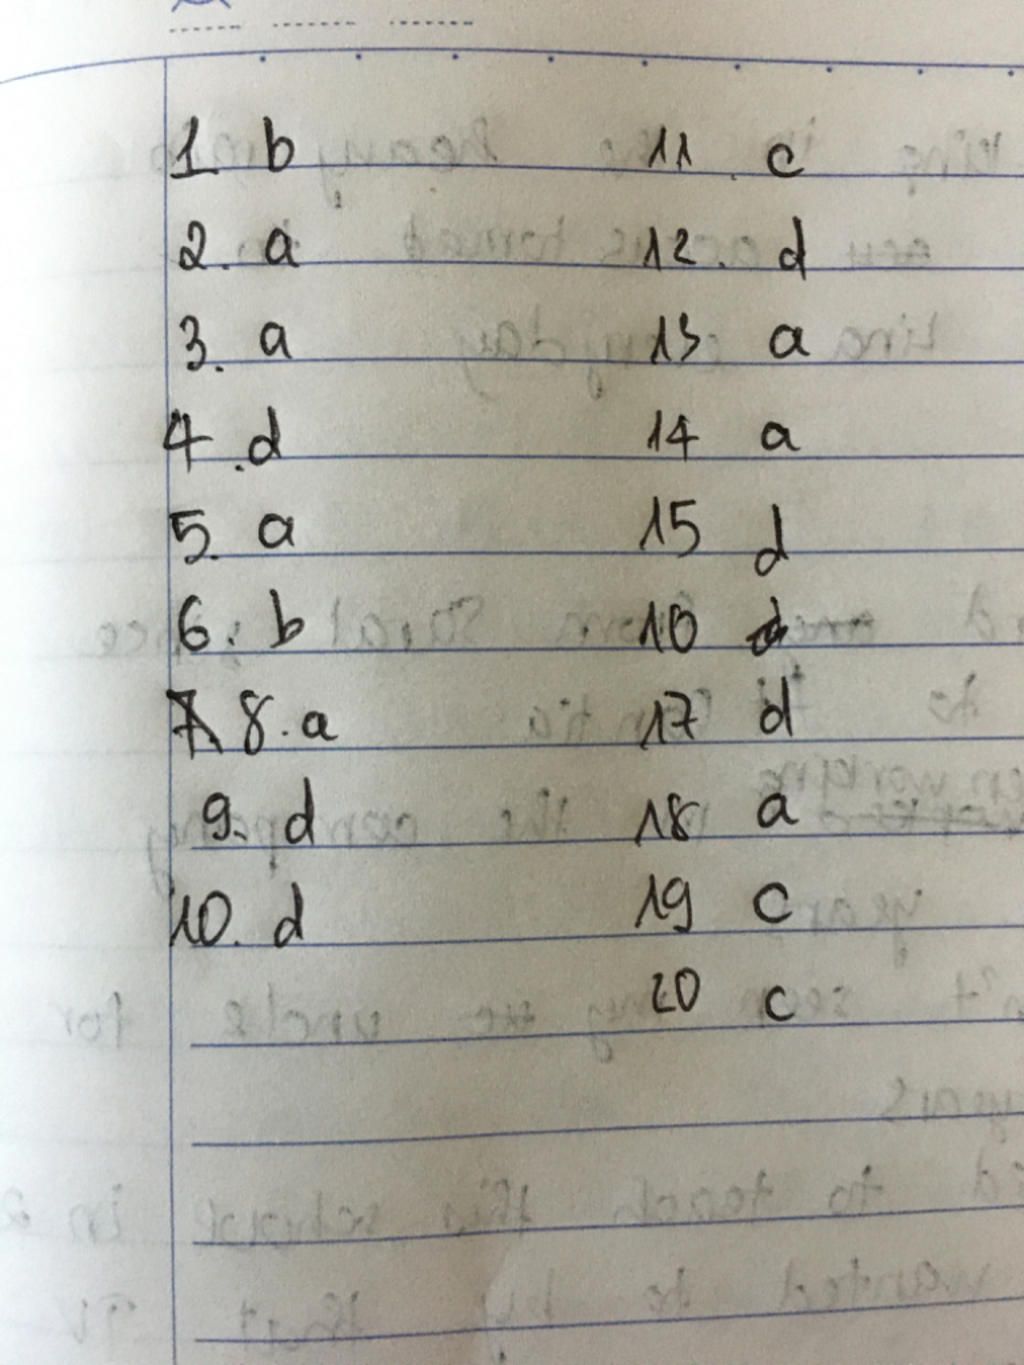 1 b
2. a
3. a
4. d
5. a
6. b
8. a
9. d
10. d
11. c
12. d
13 a
14 a
15 d
16 d
17 d
18 a
19 c
20 c